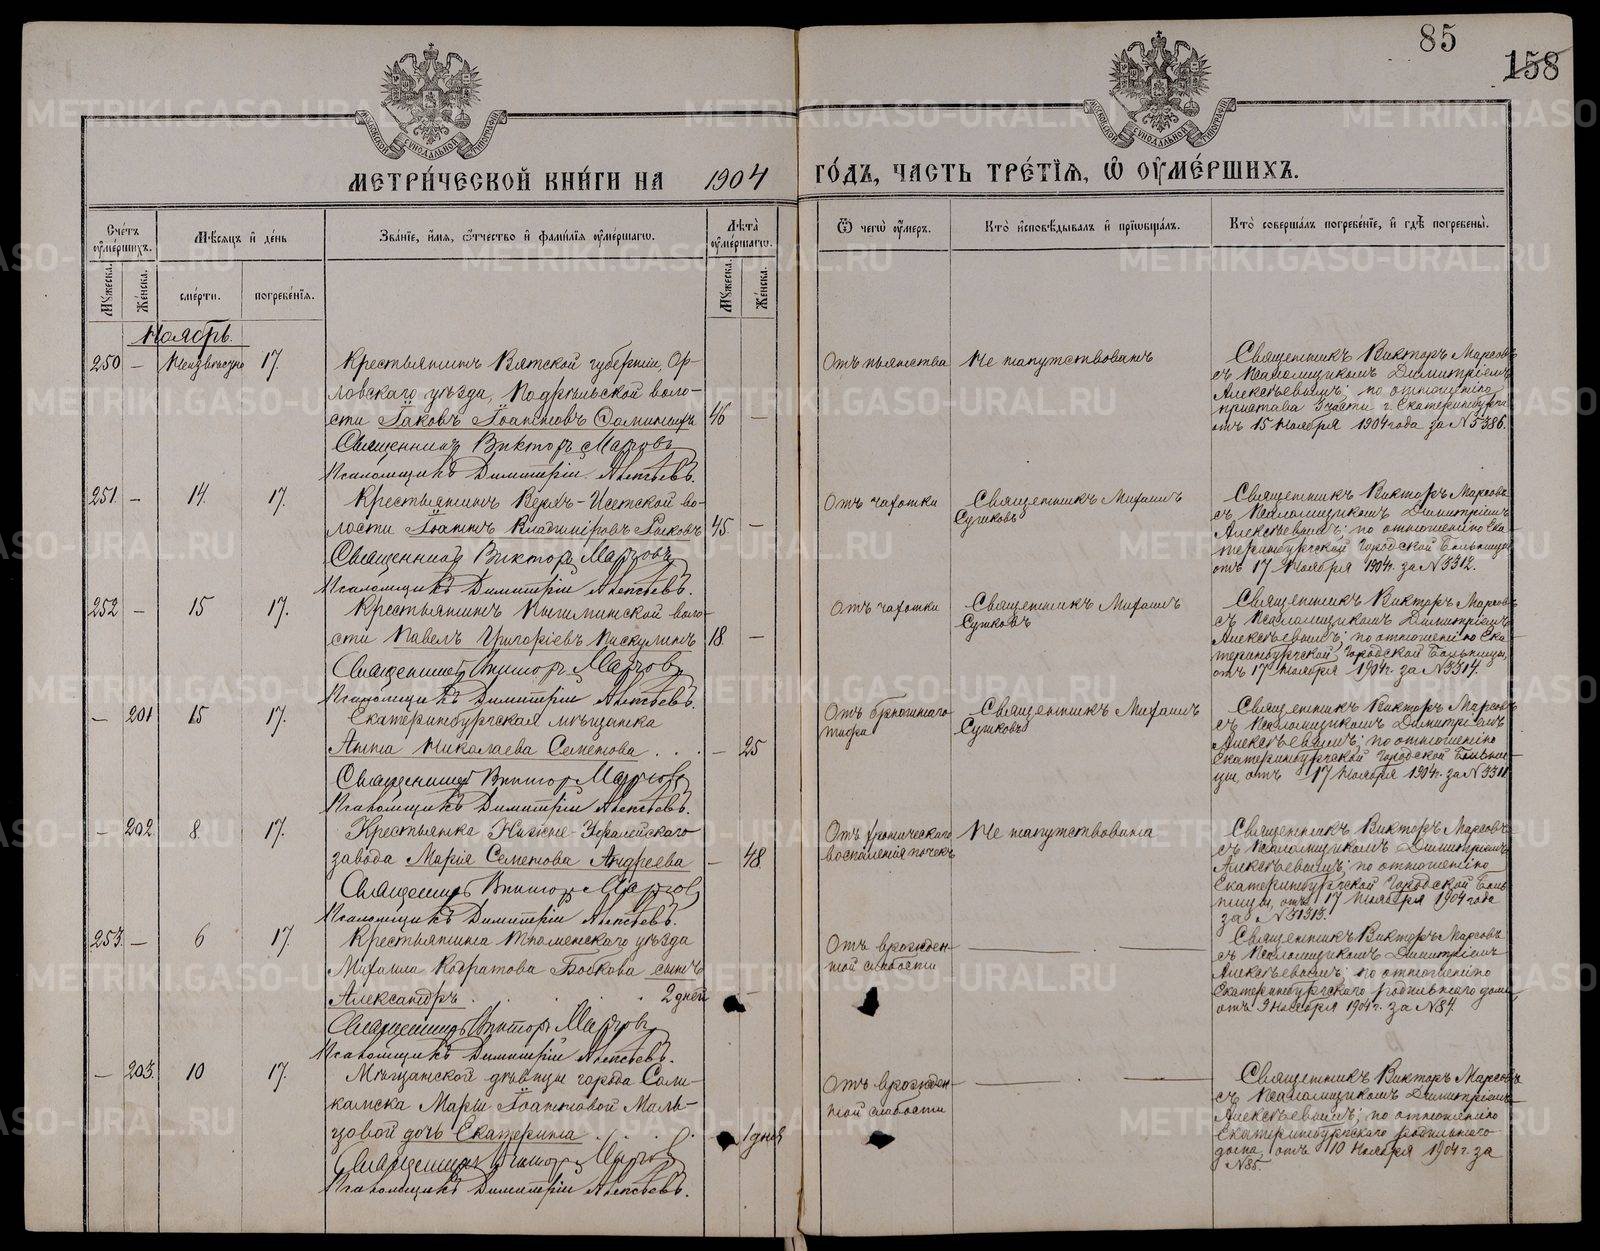 85
158
МЕТРИ́ЧЕСКОЙ КНИ́ГИ НА 1904 ГО́ДЪ, ЧАСТЬ ТРЕ́ТIѦ, Ѿ ОУ҆МЕ́РШИХЪ.
Сче́тъ оу҆ме́ршихъ.
Мѣ́сѧцъ и҆ де́нь
Зва́нїе, и҆́мѧ, ѻ҆́тчество и҆ фами́лїѧ оу҆ме́ршагѡ.
Лѣ́та оу҆ме́ршагѡ.
Ѿ чегѡ̀ оу҆́меръ.
Кто̀ и҆сповѣ́дывалъ и҆ прїѡбща́лъ.
Кто̀ соверша́лъ погребе́нїе, и҆ гдѣ̀ погребены̀.
Мꙋ́жеска.
Же́нска.
сме́рти.
погребе́нїѧ.
Мꙋ́жеска.
Же́нска.
Ноябрь.
250 — Неизвѣстно 17. Крестьянинъ Вятской губерніи, Ор-
ловскаго уѣзда, Подрельской воло-
сти Іаковъ Іоанновъ 46 —
Священникъ Викторъ Марсовъ
Псаломщикъ Димитрій Алексѣевъ.
Отъ пьянства
Не напутствованъ
Священникъ Викторъ Марсовъ
съ Псаломщикомъ Димитріемъ
Алексѣевымъ; по отношенію
пристава 3 части г. Екатеринбурга
отъ 15 Ноября 1904 года за № 5386.
251. — 14. 17. Крестьянинъ Верхъ-Исетской во-
лости Іоаннъ Владиміровъ 45. —
Священникъ Викторъ Марсовъ
Псаломщикъ Димитрій Алексѣевъ.
Отъ чахотки
Священникъ Михаилъ
Сушковъ
Священникъ Викторъ Марсовъ
съ Псаломщикомъ Димитріемъ
Алексѣевымъ; по отношенію Ека-
теринбургской Городской Больницы
отъ 17 Ноября 1904 г. за № 3312.
252 — 15 17. Крестьянинъ воло-
сти Павелъ Григоріевъ Пискулинъ 18. —
Священникъ Викторъ Марсовъ
Псаломщикъ Димитрій Алексѣевъ.
Отъ чахотки
Священникъ Михаилъ
Сушковъ
Священникъ Викторъ Марсовъ
съ Псаломщикомъ Димитріемъ
Алексѣевымъ; по отношенію Ека-
теринбургской Городской Больницы,
отъ 17 Ноября 1904 г. за № 3314.
— 201 15 17. Екатеринбургская мѣщанка
Анна Николаева Семенова . . . — 25
Священникъ Викторъ Марсовъ
Псаломщикъ Димитрій Алексѣевъ.
Отъ брюшнаго
тифа
Священникъ Михаилъ
Сушковъ
Священникъ Викторъ Марсовъ
съ Псаломщикомъ Димитріемъ
Алексѣевымъ; по отношенію
Екатеринбургской Городской Больни-
цы, отъ 17 Ноября 1904 г. за № 3311
— 202 8. 17. Крестьянка Нижне-Уфалейскаго
завода Марія Семенова Андреева — 48.
Священникъ Викторъ Марсовъ
Псаломщикъ Димитрій Алексѣевъ.
Отъ хроническаго
воспаленія почекъ
Не напутствована
Священникъ Викторъ Марсовъ
съ Псаломщикомъ Димитріемъ
Алексѣевымъ; по отношенію
Екатеринбургской Городской Боль-
ницы, отъ 17 Ноября 1904 года
за №
253. — 6 17. Крестьянина Тюменскаго уѣзда
Михаила Кодратова Бокова сынъ
Александръ . . . . . 2 дней —
Священникъ Викторъ Марсовъ
Псаломщикъ Димитрій Алексѣевъ.
Отъ врожден-
ной слабости
Священникъ Викторъ Марсовъ
съ Псаломщикомъ Димитріемъ
Алексѣевымъ; по отношенію
Екатеринбургскаго родильнаго дома,
отъ 9 Ноября 1904 г. за № 84.
— 203. 10 17. Мѣщанской дѣвицы города Соли-
камска Маріи Іоанновой Маль-
цовой дочь Екатерина . . . 1 дня
Священникъ Викторъ Марсовъ
Псаломщикъ Димитрій Алексѣевъ.
Отъ врожден-
ной слабости
Священникъ Викторъ Марсовъ
съ Псаломщикомъ Димитріемъ
Алексѣевымъ; по отношенію
Екатеринбургскаго родильнаго
дома, отъ 10 Ноября 1904 г. за
№ 85.
METRIKI.GASO-URAL.RU